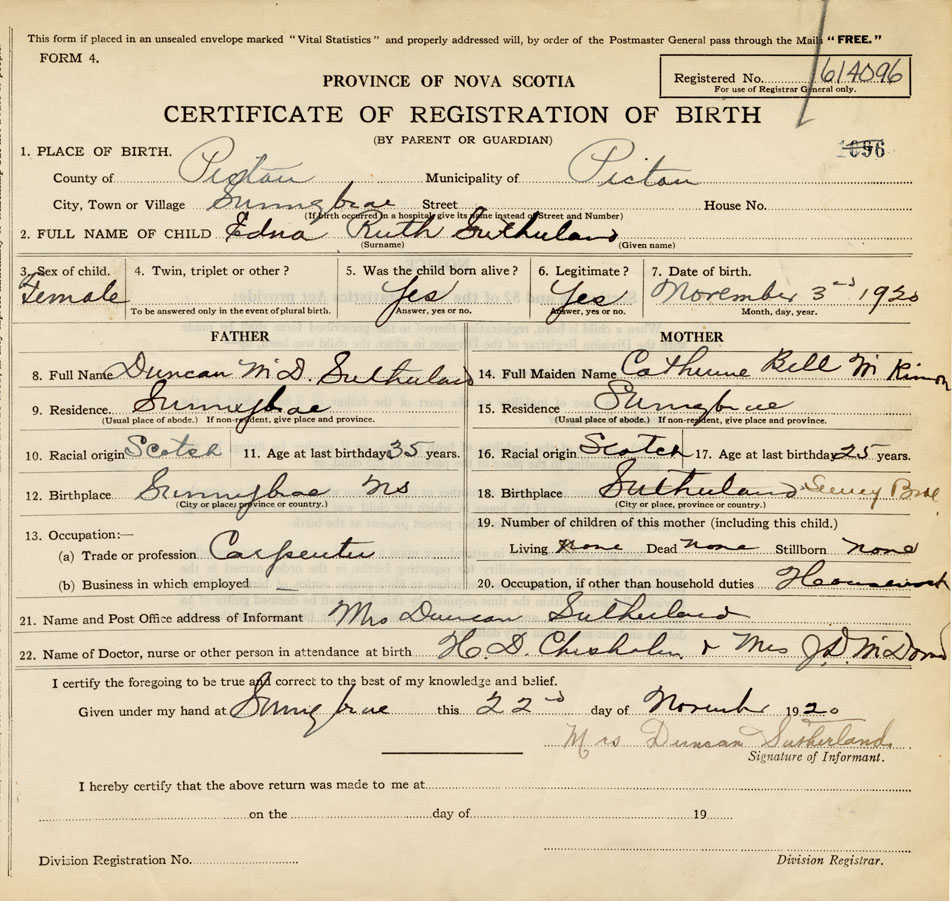 This form if placed in an unsealed envelope marked "Vital Statistics" and properly addressed will, by order of the Postmaster General pass through the Mails "FREE."
FORM 4.
Registered No. 614096
For use of Registrar General only.
PROVINCE OF NOVA SCOTIA
CERTIFICATE OF REGISTRATION OF BIRTH
(BY PARENT OR GUARDIAN)
1096
1. PLACE OF BIRTH.
County of Pictou Municipality of Pictou
City, Town or Village Sunnybrae Street House No.
(If birth occurred in a hospital give its name instead of Street and Number)
2. FULL NAME OF CHILD Edna Ruth Sutherland
(Surname) (Given name)
3. Sex of child. 4. Twin, triplet or other? 5. Was the child born alive? 6. Legitimate? 7. Date of birth.
Female Yes Yes November 3rd 1920
To be answered only in the event of plural birth. Answer, yes or no. Answer, yes or no. Month, day, year.
FATHER MOTHER
8. Full Name Duncan McD. Sutherland 14. Full Maiden Name Catherine Bell
9. Residence. Sunnybrae 15. Residence Sunnybrae
(Usual place of abode.) If non-resident, give place and province. (Usual place of abode.) If non-resident, give place and province.
10. Racial origin Scotch 11. Age at last birthday 35 years. 16. Racial origin Scotch 17. Age at last birthday 25 years.
12. Birthplace Sunnybrae NS 18. Birthplace Sutherland
(City or place, province or country.) (City or place, province or country.)
19. Number of children of this mother (including this child.)
13. Occupation:—
(a) Trade or profession Carpenter Living none Dead none Stillborn none
(b) Business in which employed 20. Occupation, if other than household duties Housework
21. Name and Post Office address of Informant Mrs Duncan Sutherland
22. Name of Doctor, nurse or other person in attendance at birth H. D. Chisholm & Mrs J.D. McDonald
I certify the foregoing to be true and correct to the best of my knowledge and belief.
Given under my hand at Sunnybrae this 22nd day of November 1920
Mrs Duncan Sutherland
Signature of Informant.
I hereby certify that the above return was made to me at
on the day of 19
Division Registration No. Division Registrar.